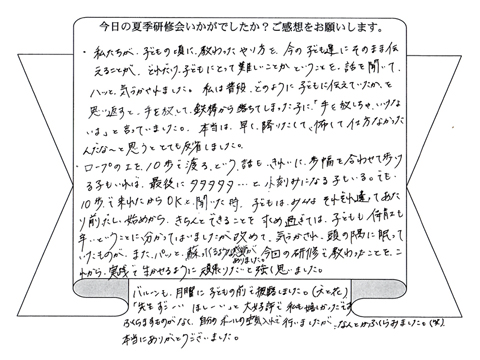 今日の夏季研修会いかがでしたか？ご感想をお願いします。
・私たちが、子どもの頃に、教わったやり方を、今の子ども達にそのまま伝
えることが、どれだけ、子どもにとって難しいことかということを、話を聞いて、
ハッと、気づかされました。私は普段、どのように子どもに伝えていたか、を
思い返すと、手を放して、鉄棒から落ちてしまった子に、「手を放しちゃ、いけな
いよ」と言っていました。本当は、早く、降りたくて、怖くて仕方なかった
んだな～と思うととても反省しました。
・ロープの上を、10歩で渡る、という、話も、きれいに、歩幅を合わせて歩け
る子もいれば、最後に タタタタタ…と、小刻みになる子もいる。でも、
10歩で来れたからOKと、聞いた時、子どもは、みんな それぞれ違ってあた
り前だし、始めから、きちんとできることを 求め過ぎては、子どもも 保育士も
辛いということに、分かってはいましたが改めて、気づかされ、頭の隅に眠って
いたものが、また、パッと、蘇ってくるような感覚が
ありました。
今回の研修で教わったことを、こ
れから、実践で 生かせるように 頑張りたいと強く思いました。
バルーンも、月曜に 子どもの前で披露しました。(犬と花)
「先生すご～い ほし～～い」と大好評で 私も嬉しかったです
ふくらますものがなく、自分の ボールの空気入れで行いましたが、なんとかふくらみました(笑)
本当にありがとうございました。